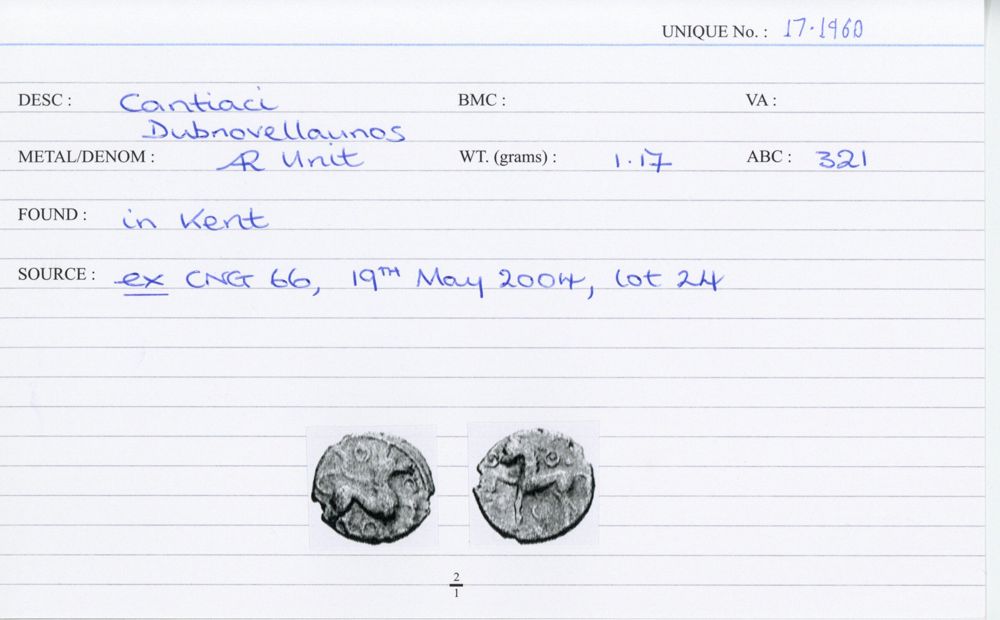 UNIQUE No. : 17.1960
DESC : Cantiaci BMC : VA :
Dubnovellaunos
METAL/DENOM : AR Unit WT. (grams) : 1.17 ABC : 321
FOUND : in Kent
SOURCE : ex CNG 66, 19TH May 2004, lot 24
2
1